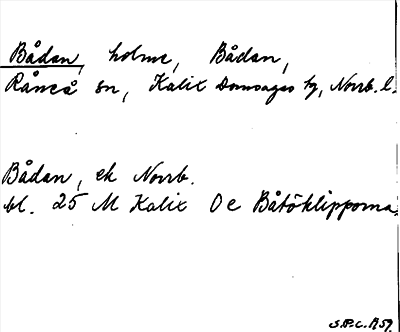 Bådan, holme, Bådan,
Råneå sn, Kalix Domsagas tg, Norrb. l.
Bådan, ek Norrb.
bl. 25 M Kalix O e Båtöklipporna.
S.P.C. A59.